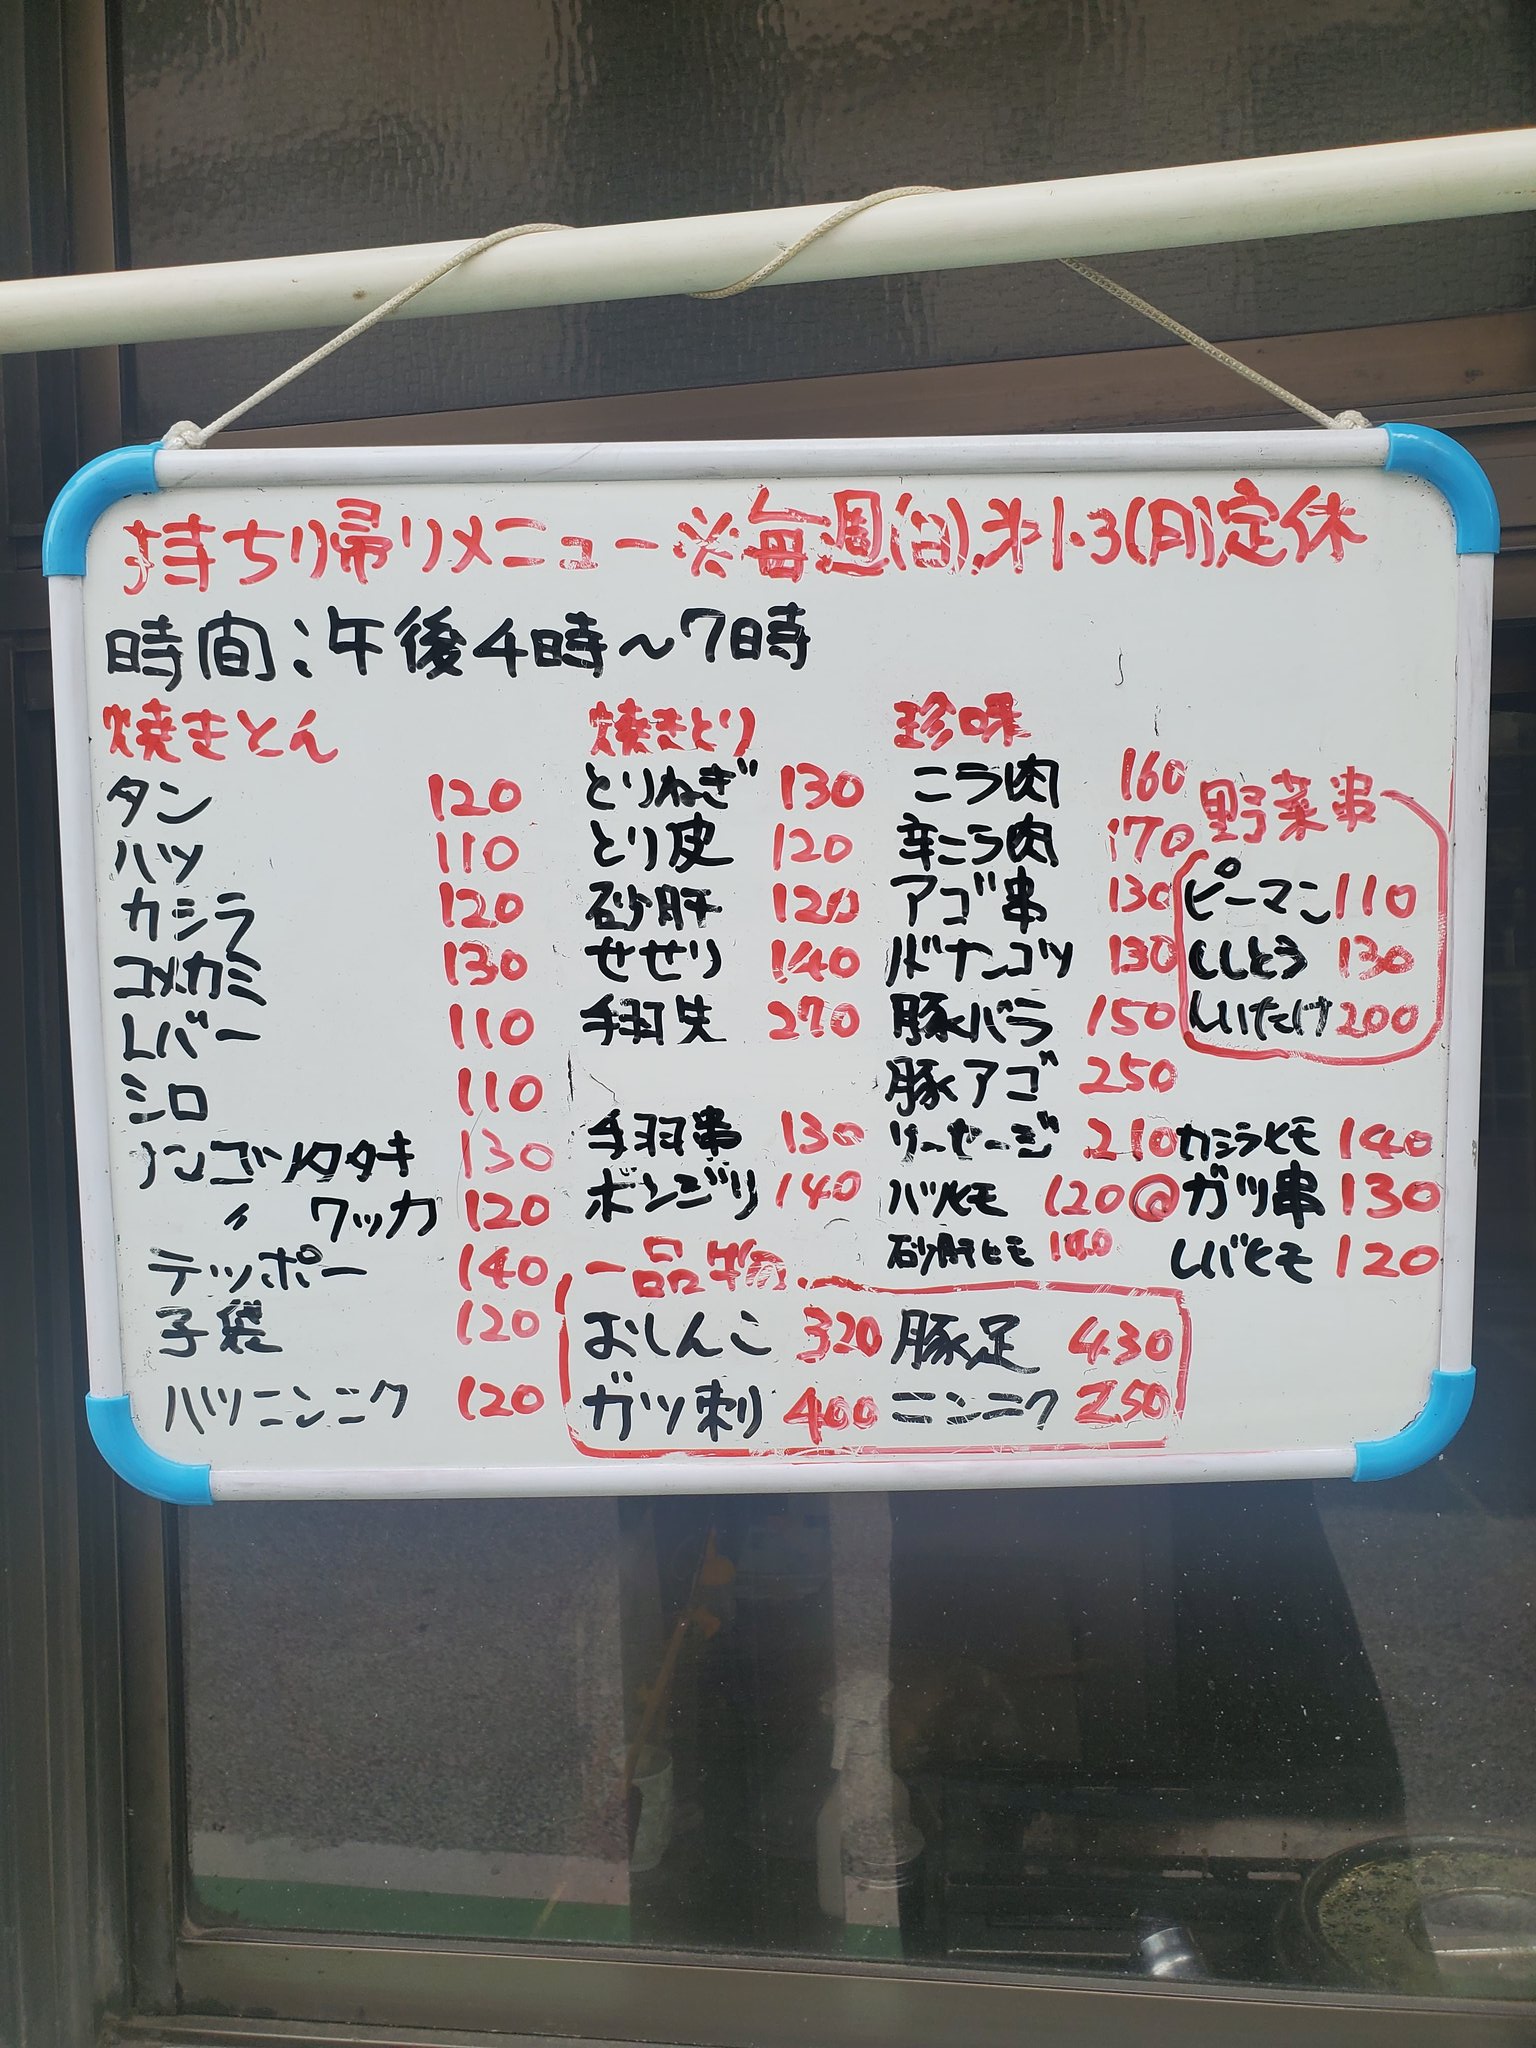 持ち帰りメニュー ※毎週(日)、第1・3(月)定休
時間:午後4時〜7時
焼きとん
タン 120
ハツ 110
カシラ 120
コメカミ 130
レバー 110
シロ 110
ナンコツタタキ 130
〃 ワッカ 120
テッポー 140
子袋 120
ハツニンニク 120
焼きとり
とりねぎ 130
とり皮 120
砂肝 120
せせり 140
手羽先 270
手羽串 130
ボンジリ 140
珍味
ニラ肉 160
辛ニラ肉 170
アゴ串 130
ドーナンコツ 130
豚バラ 150
豚アゴ 250
ソーセージ 210
ハツヒモ 120@
砂肝ヒモ 140
野菜串
ピーマン 110
ししとう 130
しいたけ 200
カシラヒモ 140
ガツ串 130
レバヒモ 120
一品物
おしんこ 320 豚足 430
ガツ刺 400 ニンニク 250